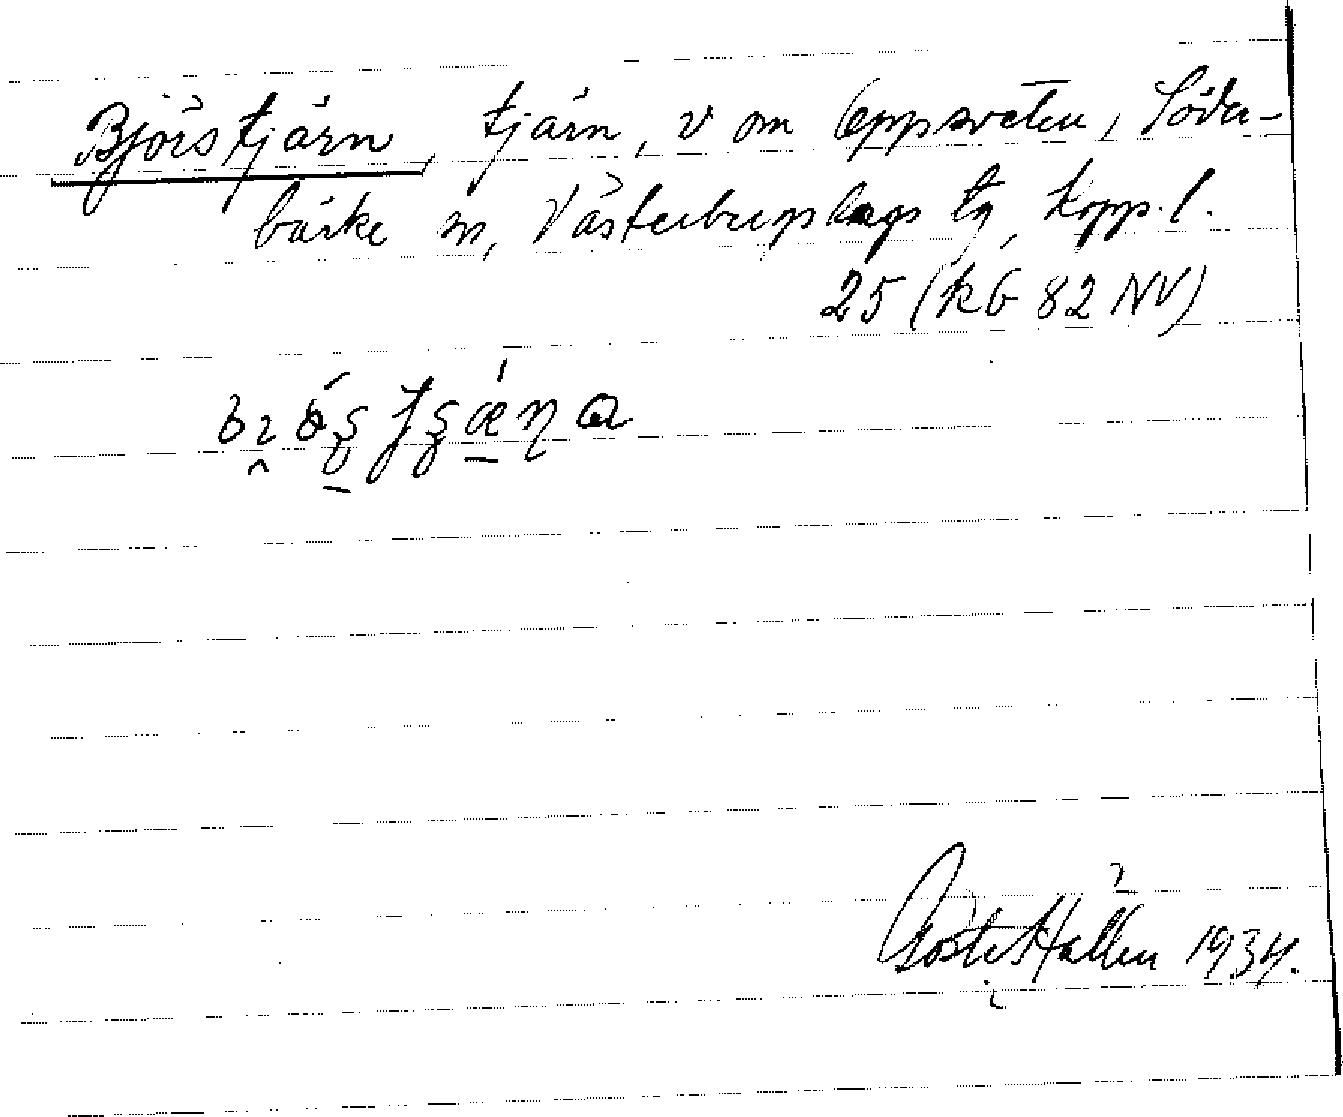 Björstjärn, tjärn, v om Leppsveten, Söder-
bärke sn, Västerbergslags tg, Kopp. l.
25 (kb 82 NV)
Gösta Hallén 1934.